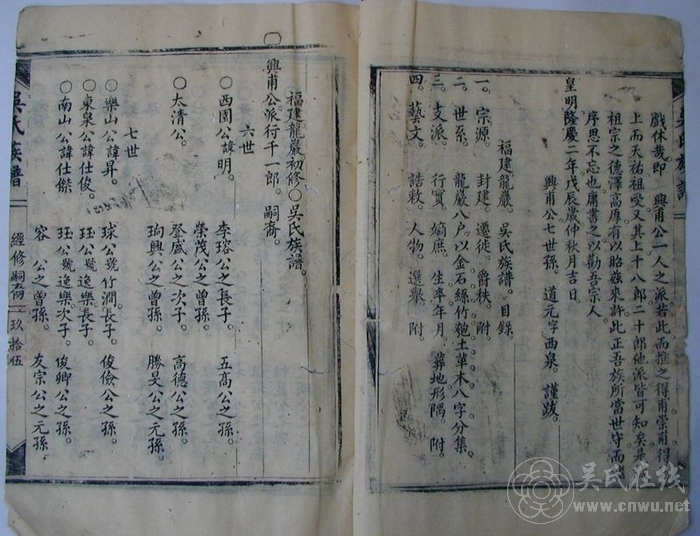 戲休哉即　興甫公一人之派若此而推之得甫崇甫得
上而天祐祖受又其上十八郎二十郎他派皆可知矣是
祖宗之德澤高厚有以昭茲來許此正吾族所當世守而
序思不忘也庸書之以勸吾宗人
皇明隆慶二年戊辰歲仲秋月吉日
興甫公七世孫　道元字西泉　謹跋。
福建龍巖。吳氏族譜。目錄。
一。宗源。封建。遷徙。爵秩。附
二。世系。龍巖八户。以金石絲竹匏土革木八字分集。
三。支派。行實。嫡庶。生卒年月。葬地形隅。附。
四。藝文。誥敕。人物。選舉。附。
吳氏族譜
福建龍巖初修〇吳氏族譜。
〇興甫公。派行千一郎。嗣裔。
六世
〇西園公諱明。李琮公之長子。五高公之孫。
榮茂公之曾孫。
〇大清公。登盛公之次子。高德公之孫。
珣興公之曾孫。勝旻公之元孫。
七世
〇樂山公諱昇。球公號竹澗長子。俊儉公之孫。
〇東泉公諱仕俊。珏公號逸樂長子。
〇南山公諱仕傑　珏公號逸樂次子。俊卿公之孫
容　公之曾孫。友宗公之元孫
吳氏族譜
經修嗣裔　玖拾伍
吴氏在线
www.cnwu.net